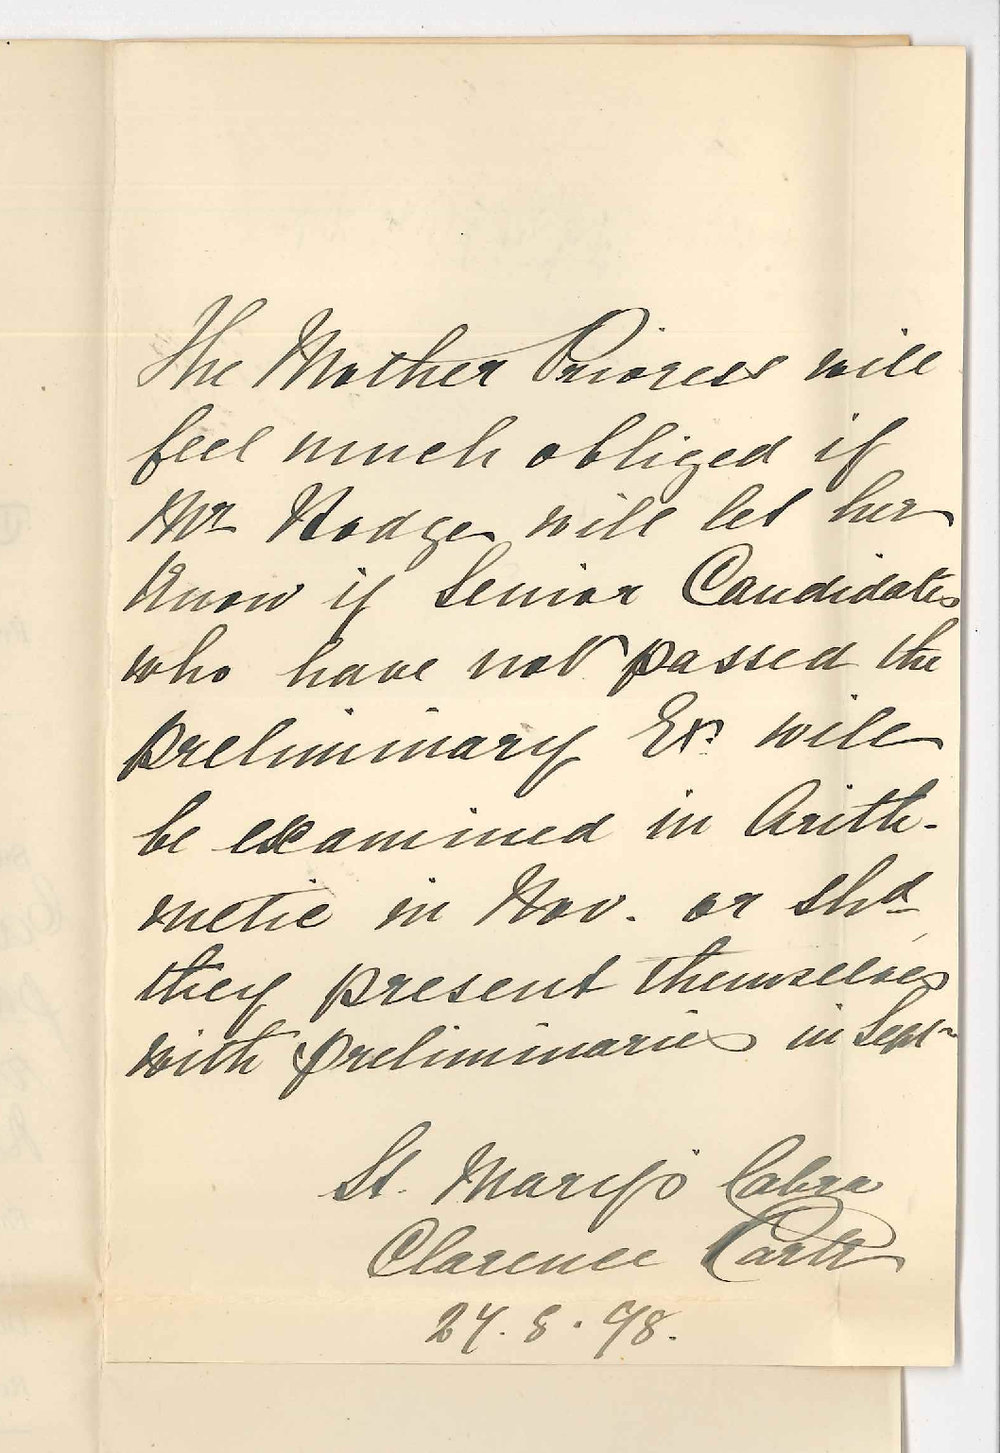 The Mother Prioress will
feel much obliged if
Mr Hodge will let her
know if Senior Candidates
who have not passed the
preliminary Ex. will
be examined in Arith-
metic in Nov. or shd
they present themselves
with preliminaries in Sepr
St. Mary's Cabra
Clarence Park
27.8.98.